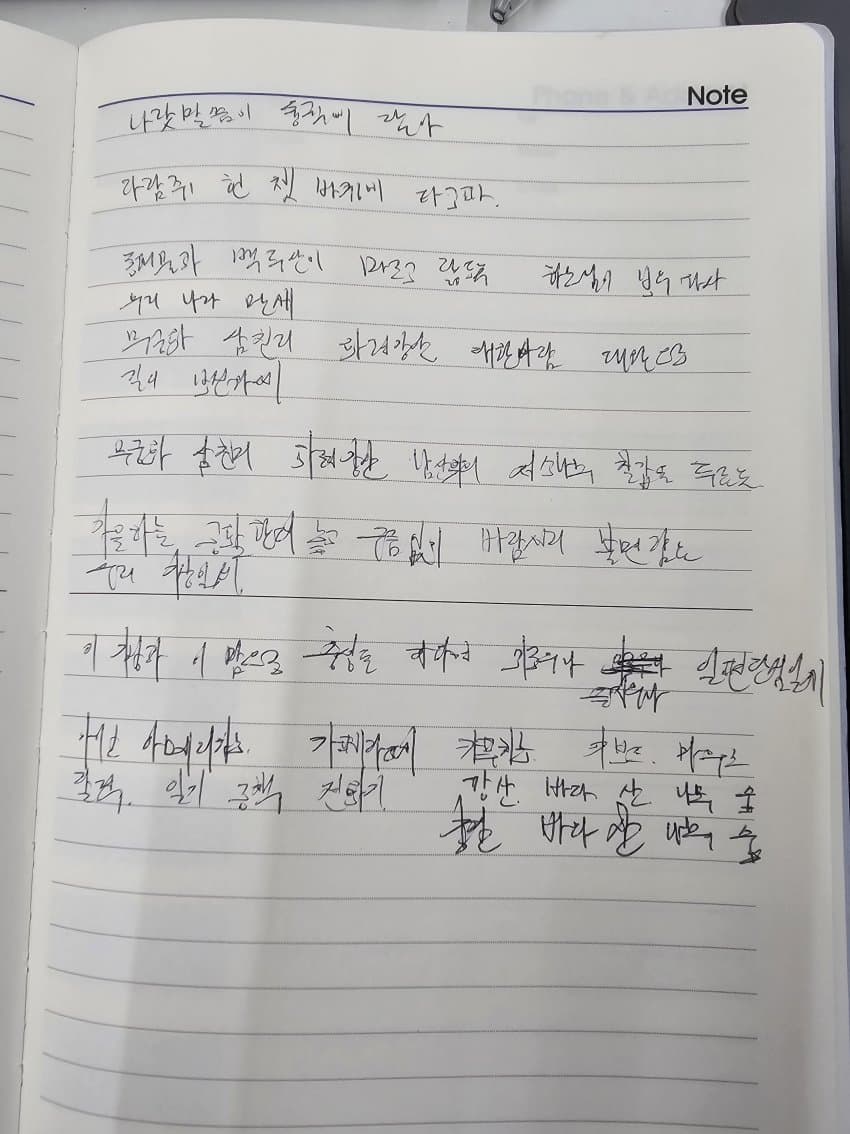 Note
나랏말씀이 달아
다람쥐 헌 쳇 바퀴에 타고파.
동해물과 백두산이 마르고 닳도록 하느님이 보우하사
우리 나라 만세
무궁화 삼천리 화려강산 대한사람 대한으로
길이 보전하세
무궁화 삼천리 화려강산 남산위의 저 소나무 철갑을 두른듯
가을하늘 공활한데 높고 구름없이 바람서리 불변함은
우리 기상일세.
이 기상과 이 맘으로 충성을 일편단심일세
아메리카노. 카페라떼 카푸치노. 키보드. 마우스
달력. 일기 공책 전화기. 강산. 바다. 산 나무 숲
바다 산 나무 숲